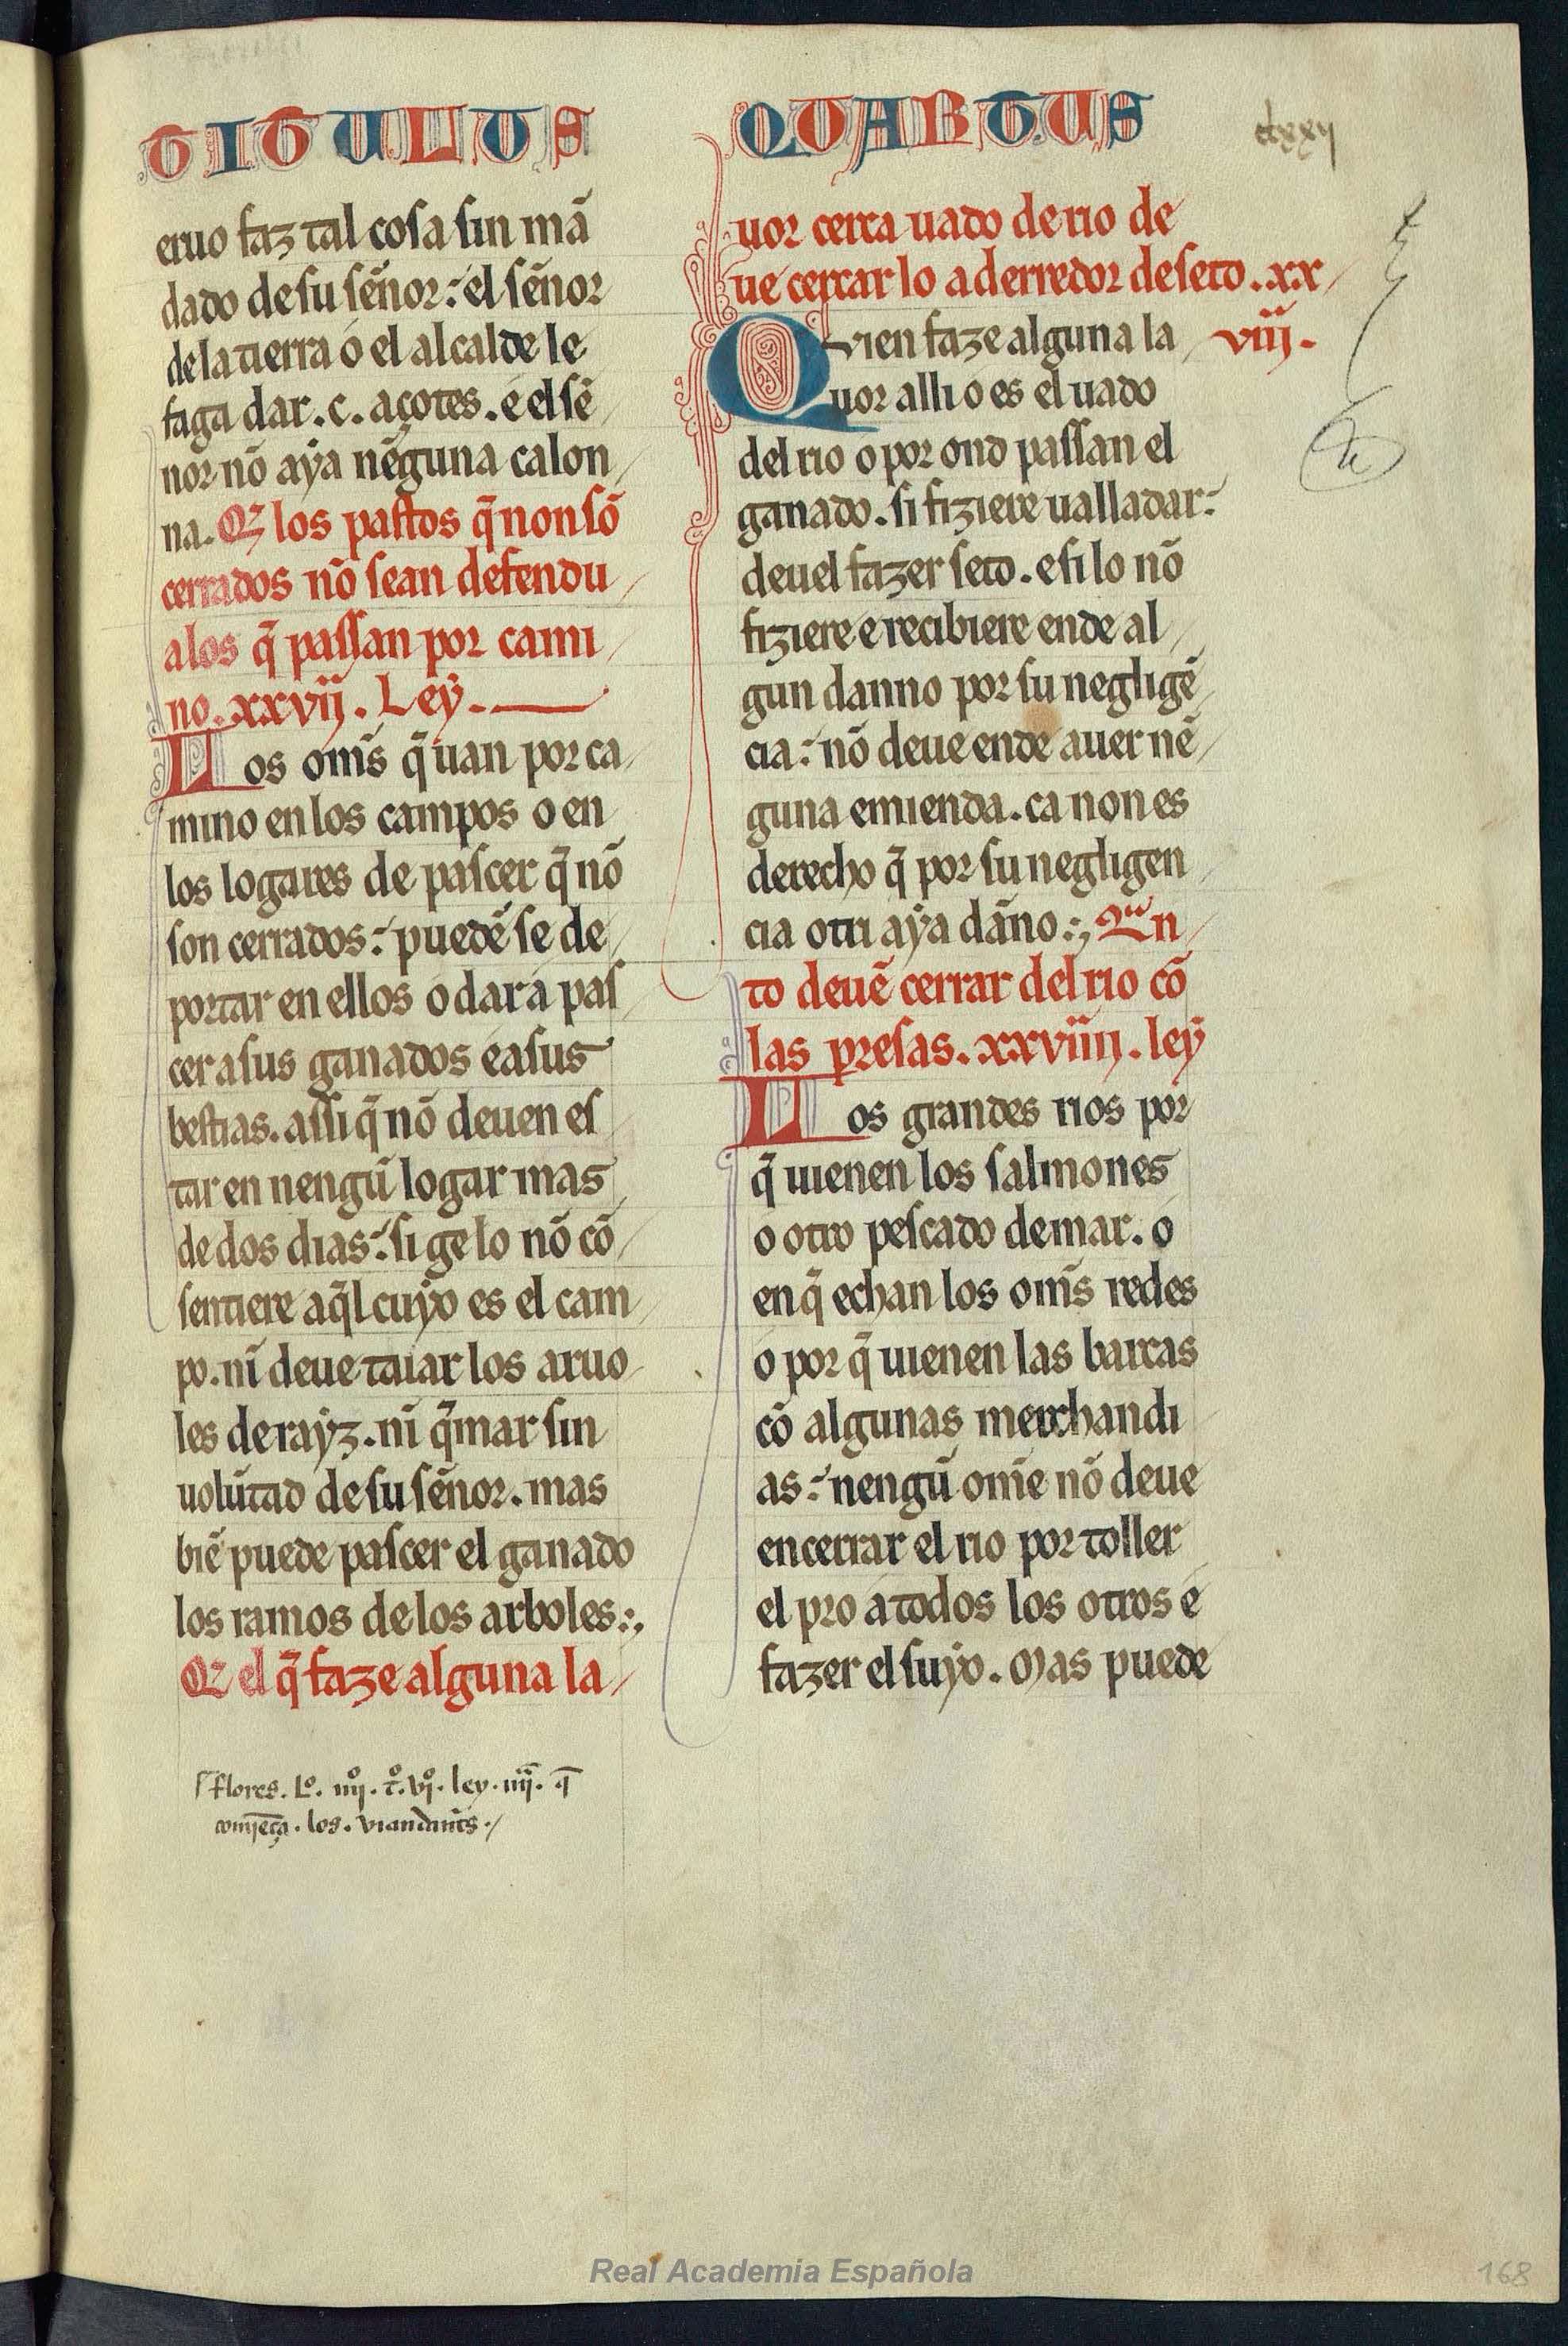 TITULUS
QUARTUS
eruo faz tal cosa sin mã
dado de su sẽnor: el sẽnor
de la tierra o el alcalde le
faga dar .c. açotes. e el sẽ
nor nõ aya nẽguna calon
na. Q̃ los pastos q̃ non sõ
cerrados nõ sean defendu
a los q̃ passan por cami
no. xxvij. Ley.
Los om̃s q̃ uan por ca
mino en los campos o en
los logares de pascer q̃ nõ
son cerrados: puedẽ se de
portar en ellos o dar a pas
cer a sus ganados e a sus
bestias. assi q̃ nõ deuen es
tar en nengũ logar mas
de dos dias: si ge lo nõ cõ
sentiere aq̃l cuyo es el cam
po. nĩ deue taiar los aruo
les de rayz. nĩ q̃mar sin
uolũtad de su sẽnor. mas
biẽ puede pascer el ganado
los ramos de los arboles:,
Q̃ el q̃ faze alguna la
ſ flores. Lº. iiijº. tº. vjº. ley. iiij. q̃
comiẽça. los. viandãtes.
uor cerca uado de rio de
ue cercar lo a derredor de seto. xx
viij.
Quien faze alguna la
uor alli o es el uado
del rio o por ond passan el
ganado. si fiziere ualladar:
deuel fazer seto. e si lo nõ
fiziere e recibiere ende al
gun danno por su negligẽ
cia: nõ deue ende auer nẽ
guna emienda. ca non es
derecho q̃ por su negligen
cia otri aya dãno:, Qⁿn
to deuẽ cerrar del rio cõ
las presas. xxviiij. ley
Los grandes rios por
q̃ uienen los salmones
o otro pescado de mar. o
en q̃ echan los om̃s redes
o por q̃ uienen las barcas
cõ algunas merchandi
as: nengũ om̃e nõ deue
encerrar el rio por toller
el pro a todos los otros e
fazer el suyo. Mas puede
Real Academia Española
168